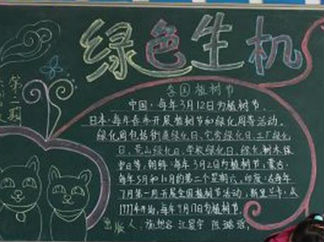 绿色生机
第二期
各国植树节
中国:每年3月12日为植树节.
日本:每年春季开展植树节和绿化周等活动.
绿化周包括街道绿化日、宅旁绿化日、工厂绿化
日、荒山绿化日、学校绿化日、绿化树木保
日等,朝鲜:每年3月2日为植树节,蒙古:
每年5月和10月的第二个星期六,印度:每年
7月第一周开展全国植树节活动,斯里兰卡:从
1977年开始,每年9月17日为植树节.
出版人: